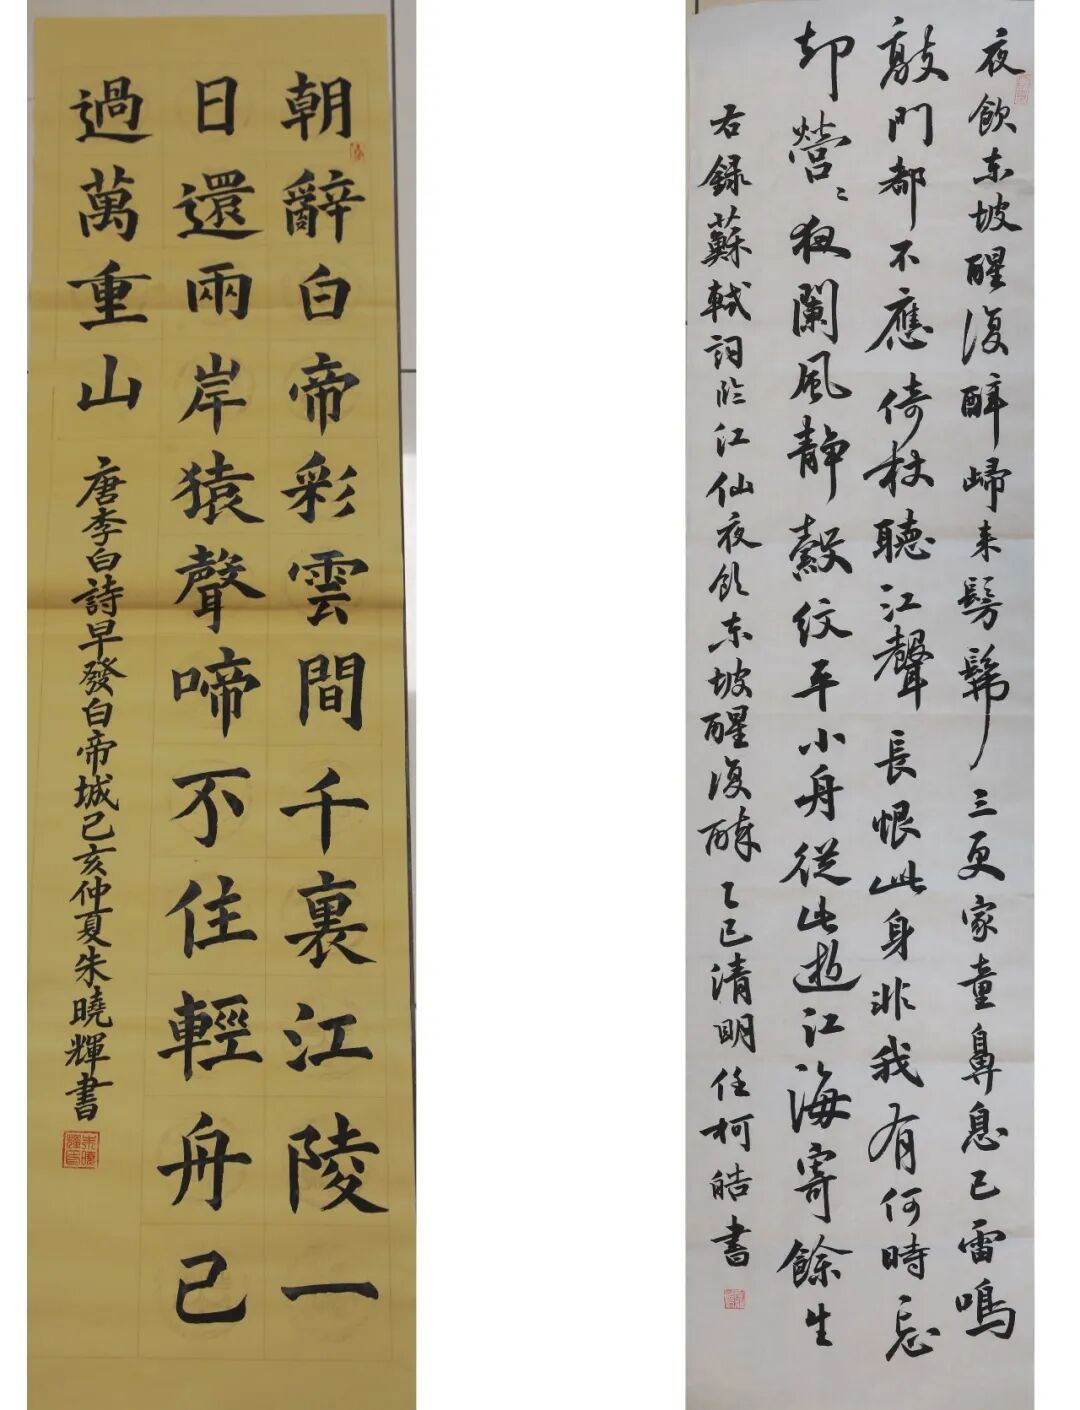 朝辭白帝彩雲間千裏江陵一
日還兩岸猿聲啼不住輕舟已
過萬重山
唐李白詩早發白帝城己亥仲夏朱曉輝書
夜飲东坡醒復醉歸来髣髴三更家童鼻息已雷鳴
敲門都不應倚杖聽江聲長恨此身非我有何時忘
却營〻夜闌風静縠纹平小舟從此逝江海寄餘生
右録蘇軾詞临江仙夜飲东坡醒復醉乙巳清明任柯皓書